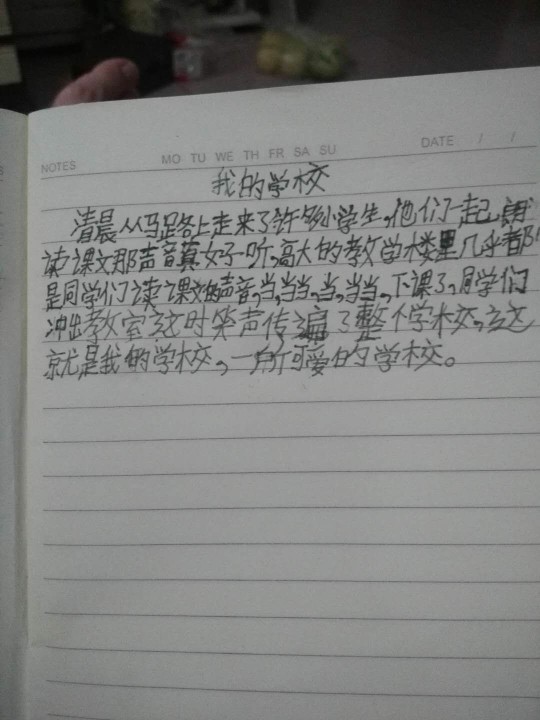 NOTES MO TU WE TH FR SA SU DATE / /
我的学校
清晨从马路上走来了许多小学生。他们一起
读课文那声音真好听,高大的教学楼里几乎都
是同学们读课文的声音,当,当当,当,当当,下课了,同学们
冲出教室这时笑声传遍了整个学校,这
就是我的学校,一所可爱的学校。